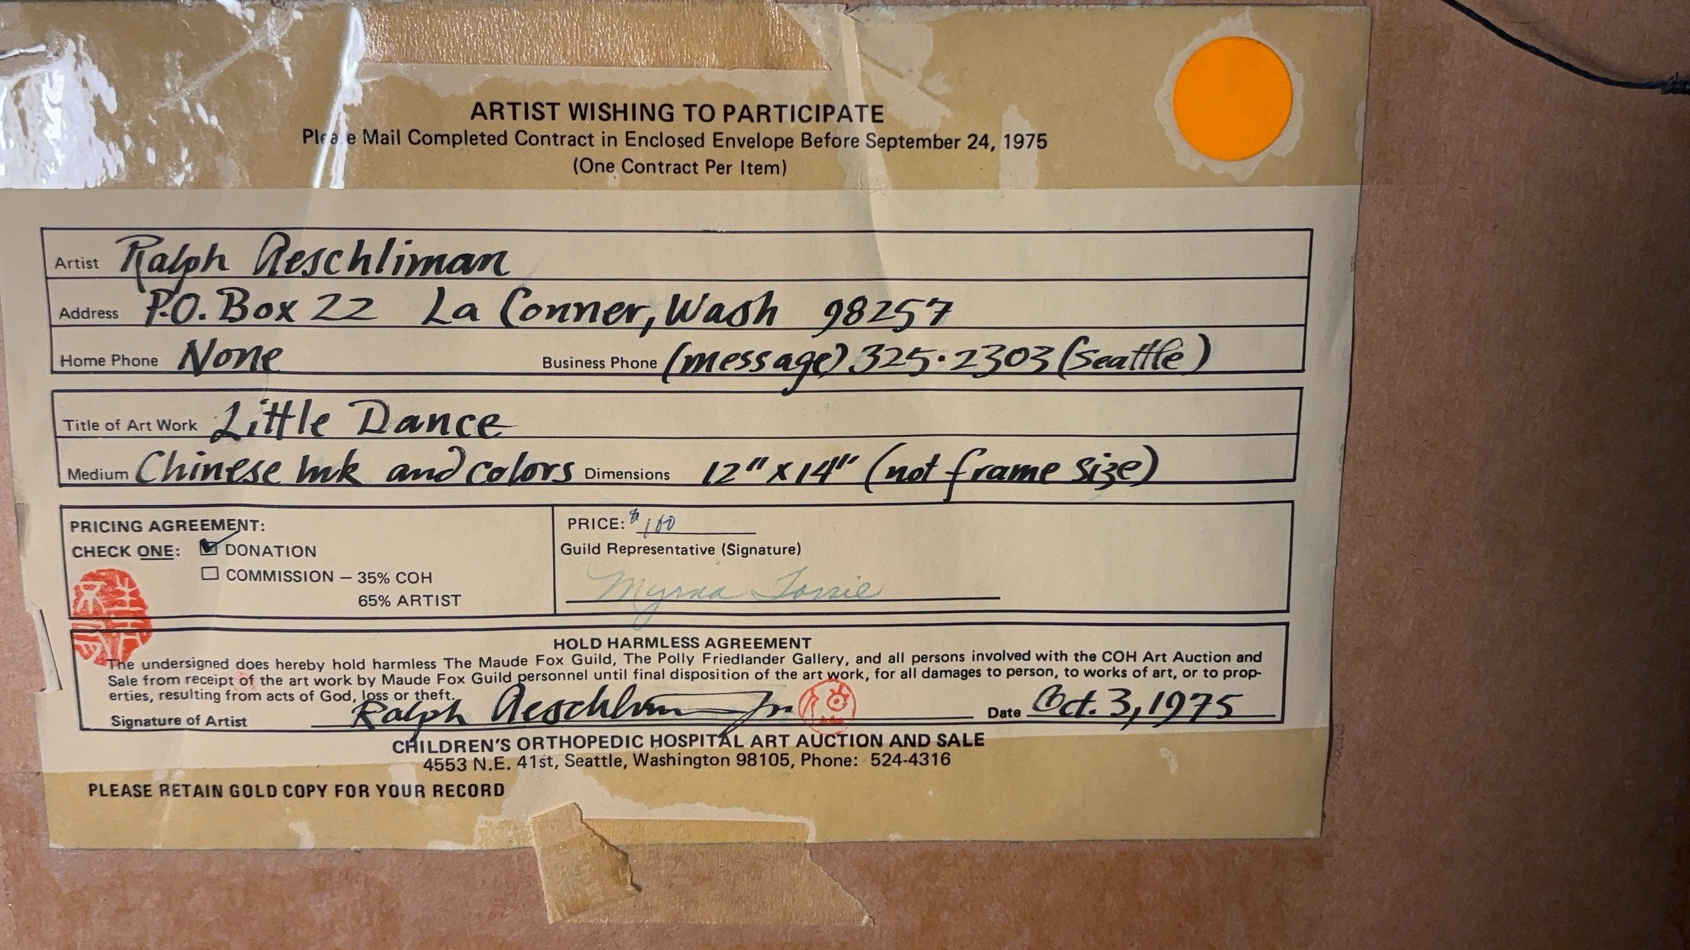 ARTIST WISHING TO PARTICIPATE
Please Mail Completed Contract in Enclosed Envelope Before September 24, 1975
(One Contract Per Item)
Artist Ralph Aeschliman
Address P.O. Box 22 La Conner, Wash 98257
Home Phone None Business Phone (message) 325·2303 (Seattle)
Title of Art Work Little Dance
Medium Chinese Ink and colors Dimensions 12" x 14" (not frame size)
PRICING AGREEMENT:
CHECK ONE: DONATION
COMMISSION – 35% COH
65% ARTIST
PRICE: $100
Guild Representative (Signature)
Myrna
HOLD HARMLESS AGREEMENT
The undersigned does hereby hold harmless The Maude Fox Guild, The Polly Friedlander Gallery, and all persons involved with the COH Art Auction and
Sale from receipt of the art work by Maude Fox Guild personnel until final disposition of the art work, for all damages to person, to works of art, or to prop-
erties, resulting from acts of God, loss or theft.
Signature of Artist Ralph Aeschliman Jr. Date Oct. 3, 1975
CHILDREN'S ORTHOPEDIC HOSPITAL ART AUCTION AND SALE
4553 N.E. 41st, Seattle, Washington 98105, Phone: 524-4316
PLEASE RETAIN GOLD COPY FOR YOUR RECORD